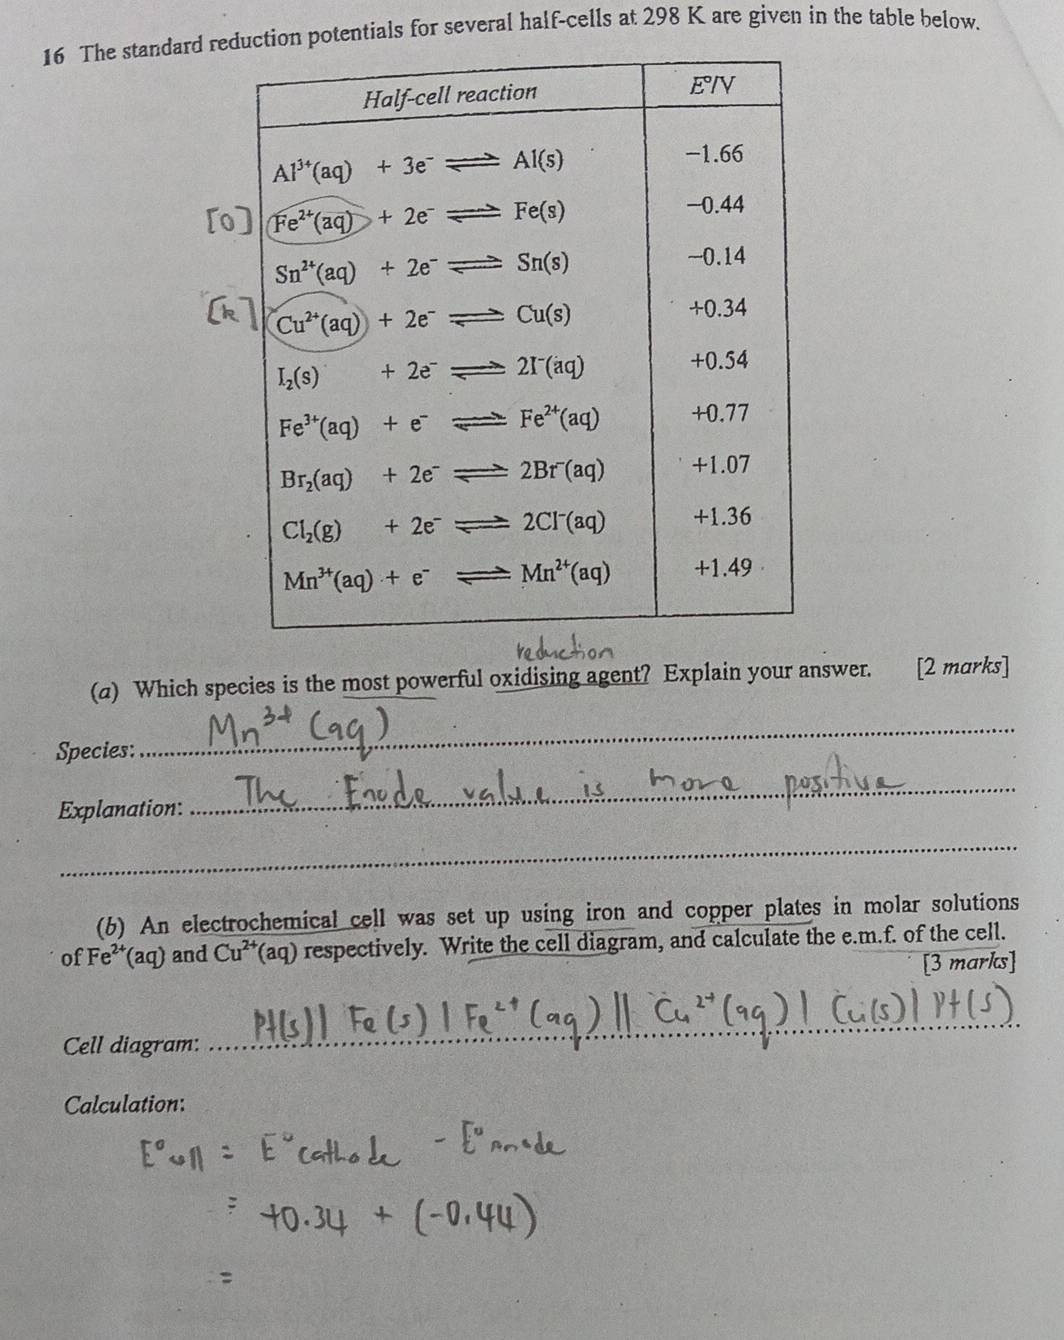 16 The standard reduction potentials for several half-cells at 298 K are given in the table below.
Half-cell reaction E°/V
Al³⁺(aq) + 3e⁻ ⇌ Al(s) −1.66
[O] Fe²⁺(aq) + 2e⁻ ⇌ Fe(s) −0.44
Sn²⁺(aq) + 2e⁻ ⇌ Sn(s) −0.14
[R] Cu²⁺(aq) + 2e⁻ ⇌ Cu(s) +0.34
I₂(s) + 2e⁻ ⇌ 2I⁻(aq) +0.54
Fe³⁺(aq) + e⁻ ⇌ Fe²⁺(aq) +0.77
Br₂(aq) + 2e⁻ ⇌ 2Br⁻(aq) +1.07
Cl₂(g) + 2e⁻ ⇌ 2Cl⁻(aq) +1.36
Mn³⁺(aq) + e⁻ ⇌ Mn²⁺(aq) +1.49
reduction
(a) Which species is the most powerful oxidising agent? Explain your answer. [2 marks]
Species: Mn³⁺ (aq)
Explanation: The Enode value is more positive
(b) An electrochemical cell was set up using iron and copper plates in molar solutions
of Fe²⁺(aq) and Cu²⁺(aq) respectively. Write the cell diagram, and calculate the e.m.f. of the cell.
[3 marks]
Cell diagram: Pt(s) | Fe(s) | Fe²⁺(aq) || Cu²⁺(aq) | Cu(s) | Pt(s)
Calculation:
E°cell = E°cathode - E°Anode
= +0.34 + (-0.44)
=